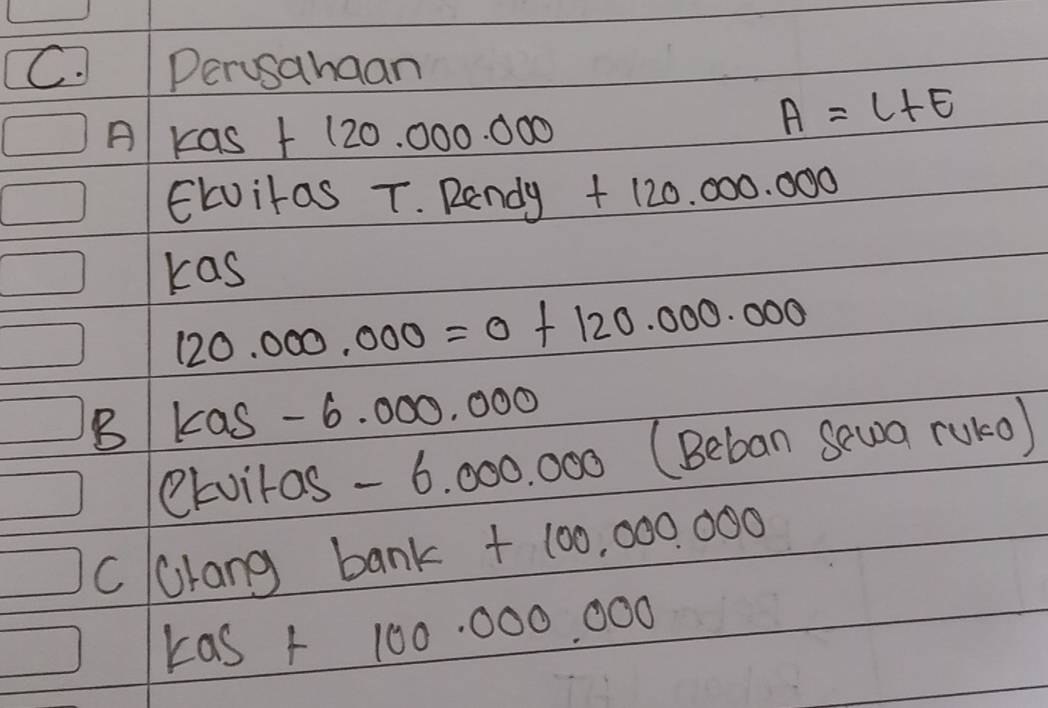 C. Perusahaan
A Kas + 120.000.000 A = L+E
Ekuitas T. Rendy + 120.000.000
Kas
120.000.000 = 0 + 120.000.000
B Kas - 6.000.000
Ekuitas - 6.000.000 (Beban Sewa ruko)
C Utang bank + 100.000.000
Kas + 100.000.000